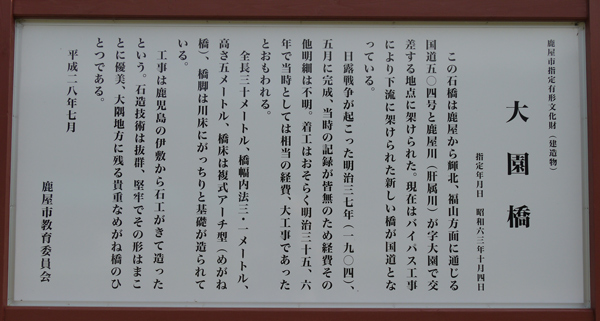 鹿屋市指定有形文化財（建造物）
大園橋
指定年月日　昭和六三年十月四日
この石橋は鹿屋から輝北、福山方面に通じる
国道五〇四号と鹿屋川（肝属川）が字大園で交
差する地点に架けられた。現在はバイパス工事
により下流に架けられた新しい橋が国道とな
っている。
日露戦争が起こった明治三七年（一九〇四）、
五月に完成、当時の記録が皆無のため経費その
他明細は不明。着工はおそらく明治三十五、六
年で当時としては相当の経費、大工事であった
とおもわれる。
全長三十メートル、橋幅内法三・一メートル、
高さ五メートル、橋床は複式アーチ型（めがね
橋）、橋脚は川床にがっちりと基礎が造られて
いる。
工事は鹿児島の伊敷から石工がきて造った
という。石造技術は抜群、堅牢でその形はまこ
とに優美、大隅地方に残る貴重なめがね橋のひ
とつである。
平成二八年七月
鹿屋市教育委員会